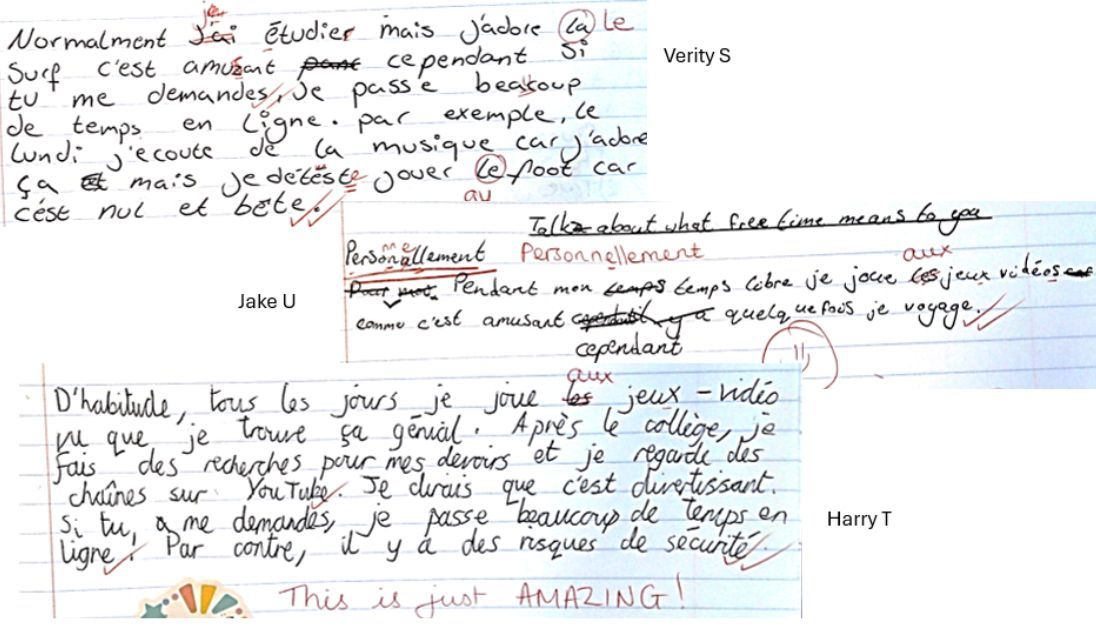 je
Normalment J'ai étudier mais j'adore la le
surf c'est amusant cependant si
Verity S
tu me demandes, Je passe beacoup
de temps en ligne. par exemple, le
lundi j'ecoute de la musique car j'adore
ça mais je déteste jouer le foot car
au
c'ést nul et bête.
Talk about what free time means to you
Personallement Personnellement
aux
Pendant mon temps temps libre je joue les jeux vidéos
Jake U
comme c'est amusant quelquefois je voyage.
cependant
aux
D'habitude, tous les jours je joue les jeux-vidéo
vu que je trouve ça génial. Après le collège, je
fais des recherches pour mes devoirs et je regarde des
chaînes sur YouTube. Je dirais que c'est divertissant.
Si tu, me demandes, je passe beaucoup de temps en
Harry T
ligne. Par contre, il y a des risques de sécurité.
This is just AMAZING!